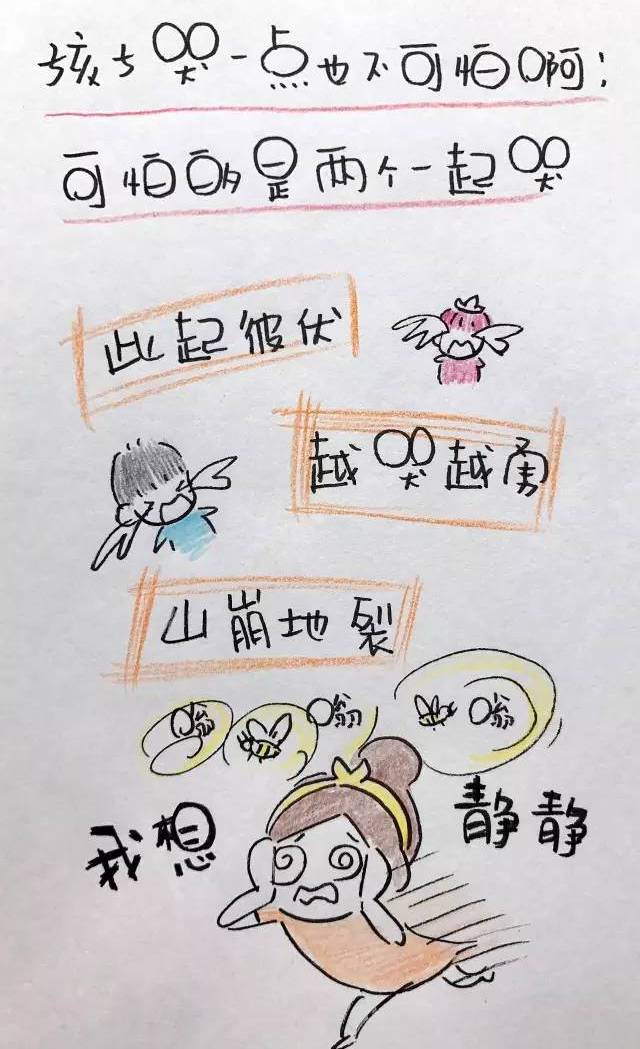 孩子哭一点也不可怕啊！
可怕的是两个一起哭
此起彼伏
越哭越勇
山崩地裂
嗡
嗡
嗡
我想
静静